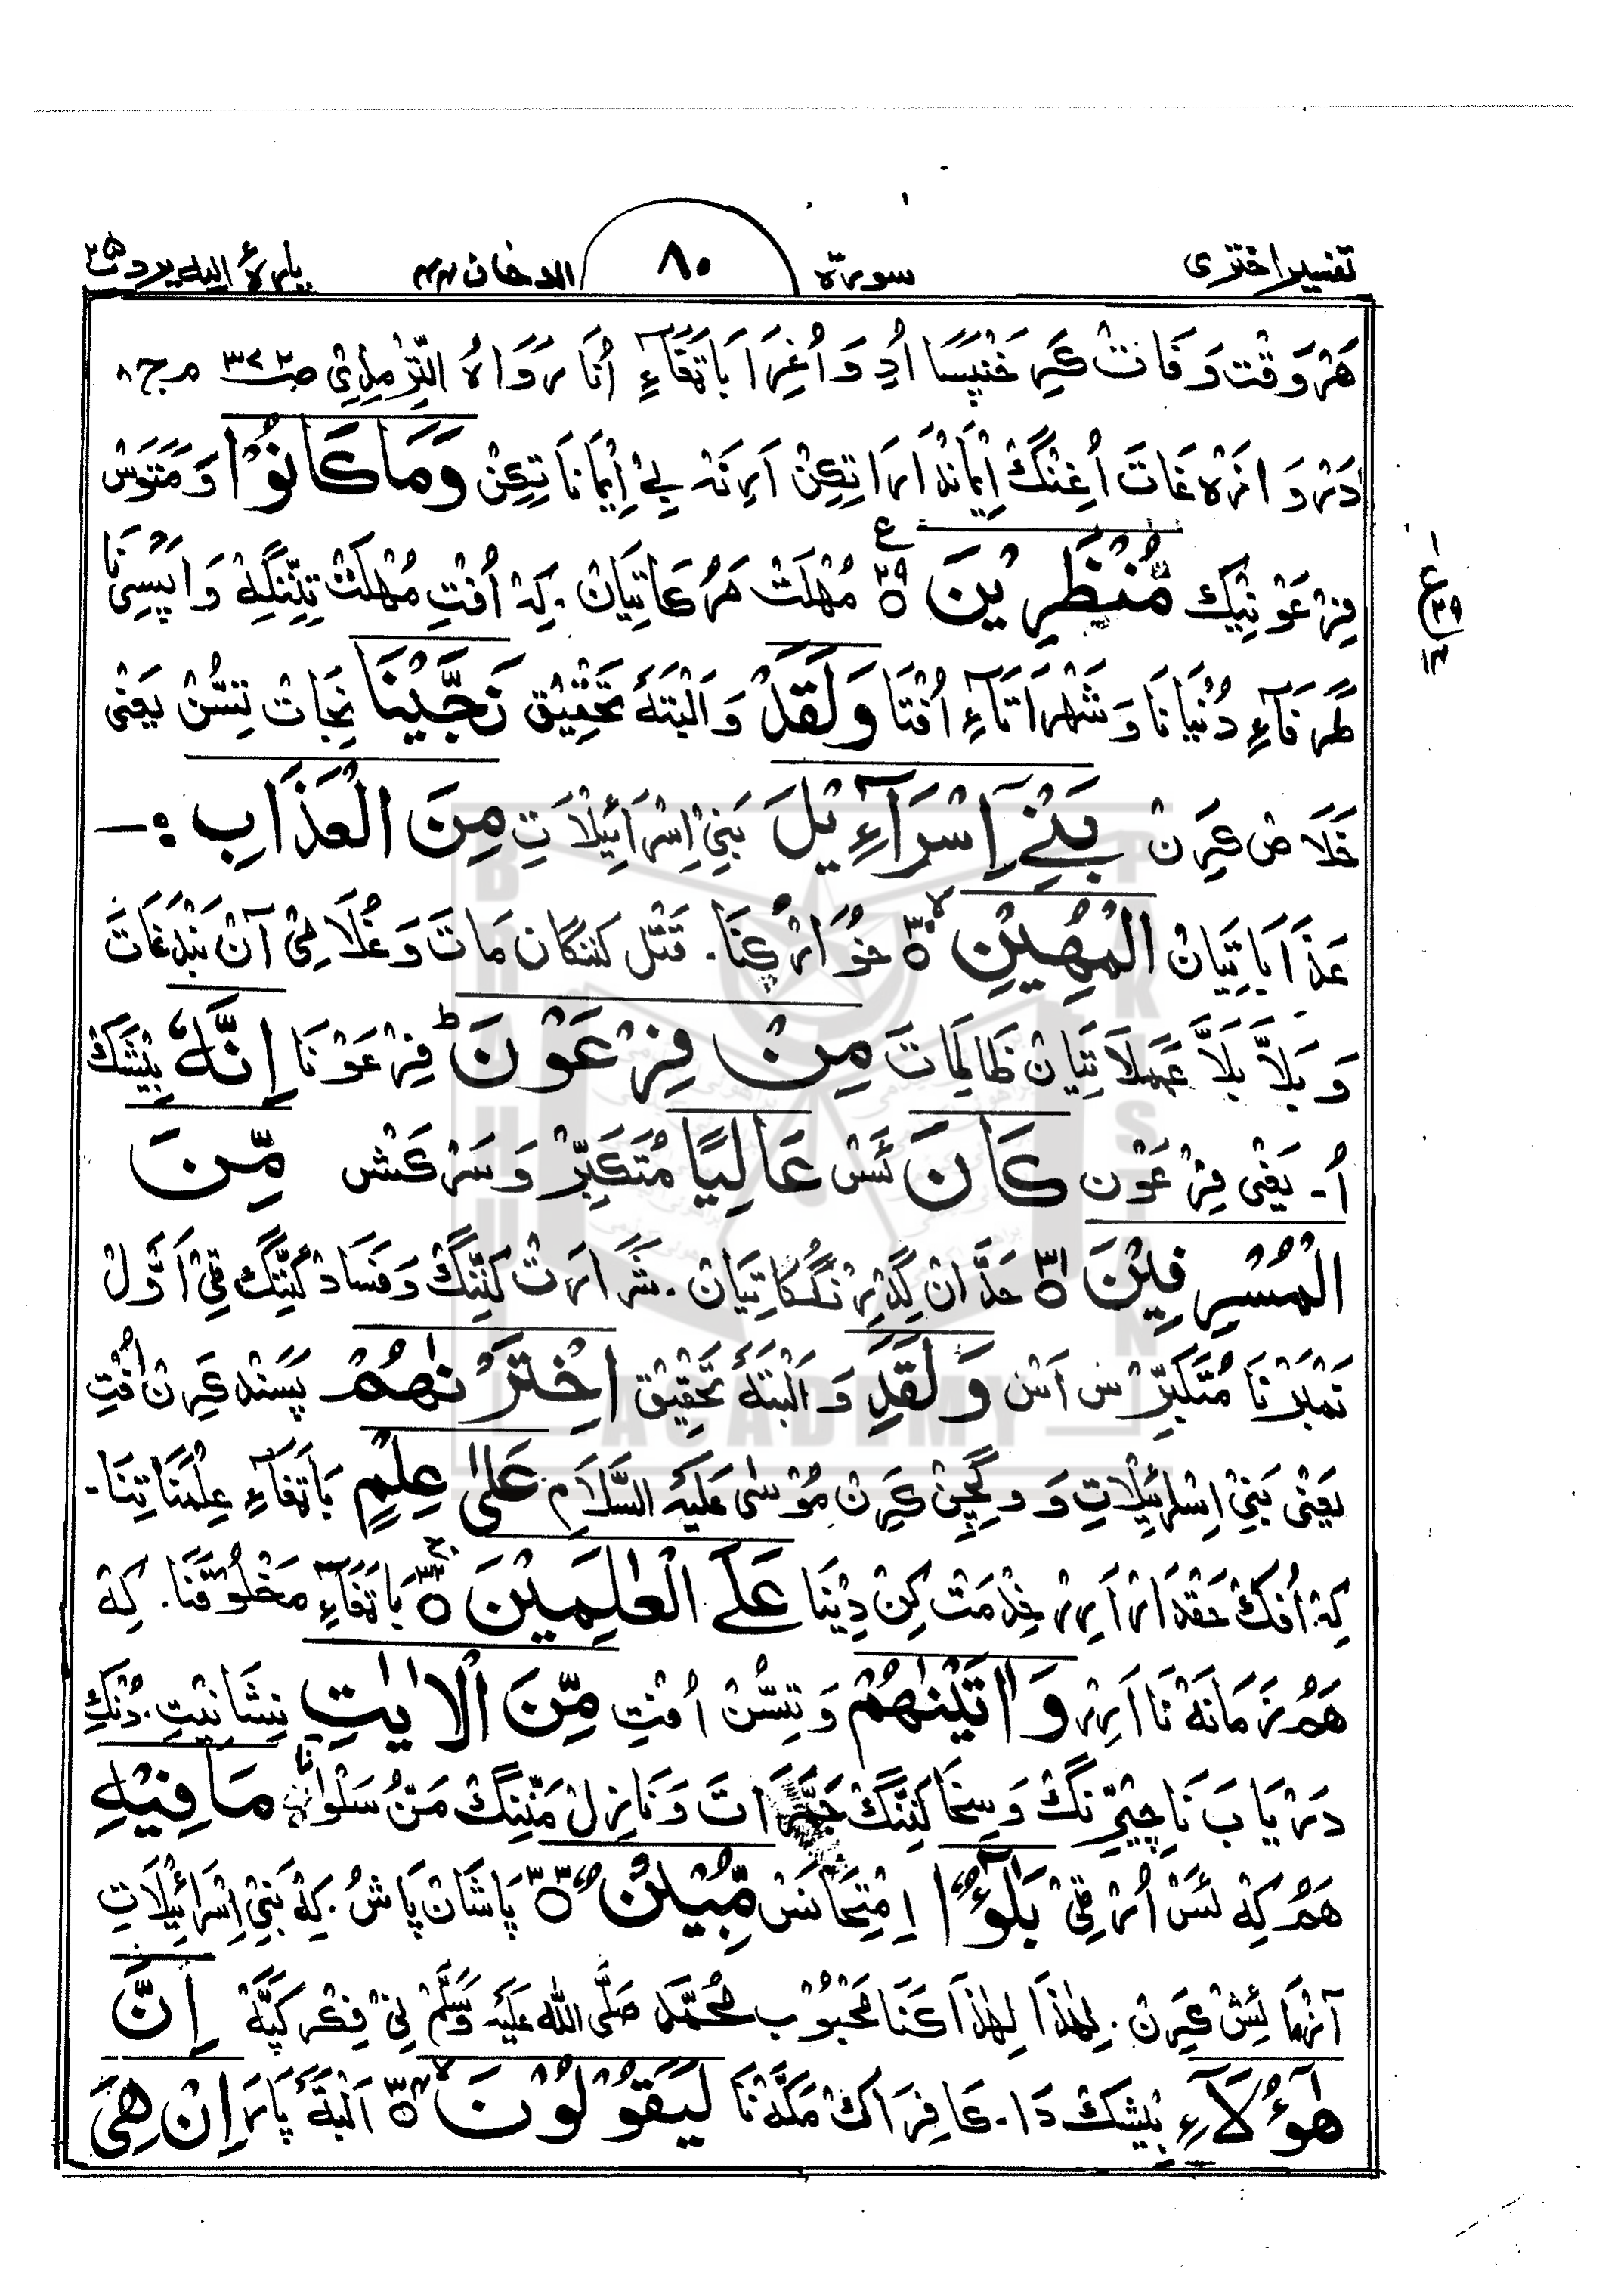 تفسیر اختری
سورۃ
٨٠
الدخان ٤٤
پارۀ الیہ یرد ٢٥
هَرْوَقْت وَفَاتْ كَرِ خَنْپَسَا اُدِ وَاُغِرَا بَاتَغَآءِ اُنَا رَوَاهُ التِّرْمِذِيْ صـ٣٧٢ مـ ج٨
دَرْوَازَه غَاتَ اُغِنْگْ اِیْمَانْدَارَاتِكِنْ اَرِنَه بِے اِیْمَانَاتِكِنْ وَمَا كَانُوْا وَمَتَوَسْ
فِرْعَوْنِیْك مُنْظَرِيْنَ ۝٢٩ مُهْلَتْ مَرُ كَاتِیَانْ. كِهْ اُفْتِ مُهْلَتْ تِنِّنْگِهْ وَاپَسِی نَا
طَرَفَآءِ دُنْیَانَا وَ شَهْرَاتَآءِ اُفْتَا وَلَقَدْ وَالْبَتَهٗ تَحْقِیْق نَجَّيْنَا نِجَاتْ تِسُّنْ یَعْنٰی
خَلَاصْ كَرِنْ بَنِيْٓ اِسْرَآءِيْلَ بَنِیْ اِسْرَائِیْلَاتِ مِنَ الْعَذَابِ :ـ
عَذَابَاتِیَانْ الْمُهِيْنِ ۝٣٠ خُوَارْ كِنَا. قَتْل كَنِنْگَان مَاتَ وَ غُلَامِیْ آنْ بَنْدَغَاتَ
وَ بَلَّا بَلَّا عَمَلَاتِیَانْ ظَالِمَاتَ مِنْ فِرْعَوْنَ ؕ فِرْعَوْنَا اِنَّهٗ بِیْشَكْ
اُ۔ یَعْنٰی فِرْعَوْن كَانَ ئَسْ عَالِيًا مُتَكَبِّرْ وَ سَرْكَشْ مِّنَ
الْمُسْرِفِيْنَ ۝٣١ حَدَّانْ گِدْرِنْگُكَاتِیَانْ. شَرَارَتْ كَنِنْگْ وَ فَسَادْ كَنِنْگ ٹِیْ اَوَّلْ
نَمْبَرْنَا مُتَكَبِّرْس اَسْ وَلَقَدِ وَالْبَتَهٗ تَحْقِیْق اخْتَرْنٰهُمْ پَسَنْد كَرِنْ اُفْتِ
یَعْنٰی بَنِیْ اِسْرَائِیْلَاتِ وَ وگِچِنْ كَرِنْ مُوْسٰی عَلَیْهِ السَّلَام عَلٰى عِلْمٍ بَاتَغَآءِ عِلْمَنَا تِنَا.
كِهْ اُفَكْ حَقْدَار اَرِرْ خِدْمَتْ كِنْ دِیْنَا عَلَى الْعٰلَمِيْنَ ۝٣٢ بَاتَغَآءِ مَخْلُوْقْنَا. كِهْ
هَمْ زَمَانَهْ نَا اَرِرْ وَاٰتَيْنٰهُمْ وَ تِسُّنْ اُفْتِ مِّنَ الْاٰيٰتِ نِشَانِیْتِ. دُنْكِ
دَرْیَابَ نَا چِیْرِنْگْ وَ سِخَا كَنِنْگْ وَ نَازِلْ مَنِنْگْ مَنُّ سَلْوَا نَا مَا فِيْهِ
هَمْ كِهْ ئَسْ اُرْ ٹِیْ بَلٰٓؤٌا اِمْتِحَانَسْ مُّبِيْنٌ ۝٣٣ پَاشَانْ پَاشُ. كِهْ بَنِیْ اِسْرَائِیْلَاتِ
آزْمَائِشْ كَرِنْ. لِهٰذَا لِهٰذَا كَنَا مَحْبُوْب مُحَمَّد صَلَّی اللّٰهُ عَلَیْهِ وَسَلَّمْ نِیْ فِكْر كَپَّهْ اِنَّ
هٰٓؤُلَآءِ بِیْشَكْ دَا. كَافِرَاكْ مَكَّهْ نَا لَيَقُوْلُوْنَ ۝٣٤ اَلْبَتَّهٗ پَارَ اِنْ هِيَ